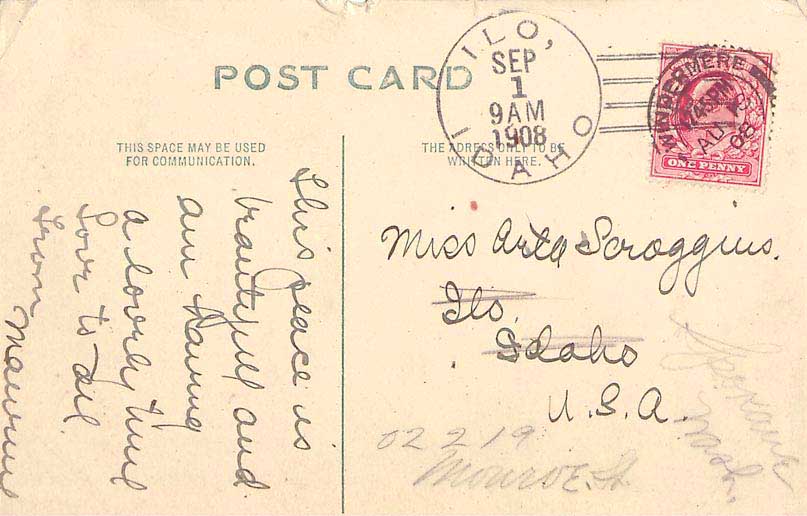 POST CARD
THIS SPACE MAY BE USED
FOR COMMUNICATION.
THE ADRESS ONLY TO BE
WRITTEN HERE.
ILO,
SEP
1
9AM
1908
IDAHO
WINDERMERE
7 45PM
AU 19
08
ONE PENNY
This peace is
beautyfull and
am having
a lovely time
Love to all
From
Miss Arla Scroggins.
Ilo.
Idaho
U.S.A.
Spokane
Wash.
02219
Monroe St.